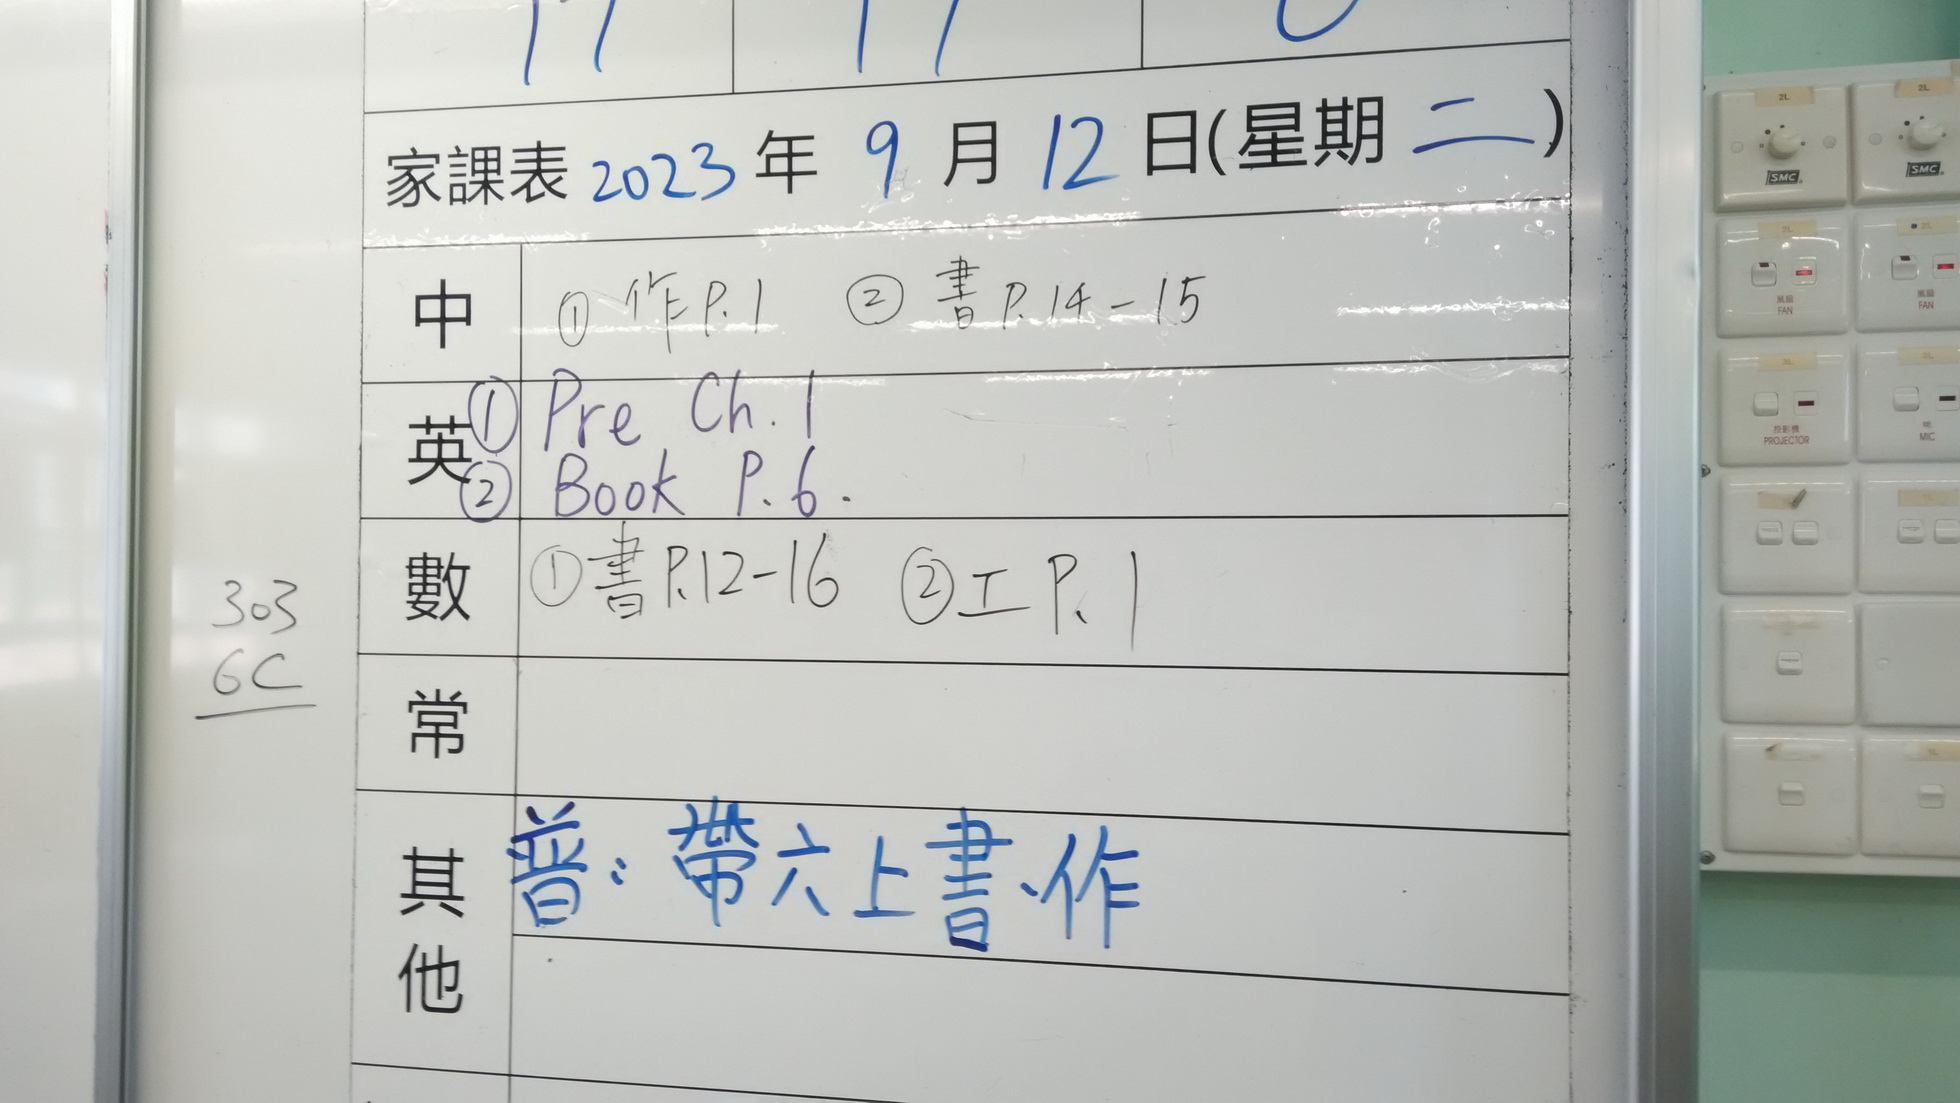 家課表 2023 年 9 月 12 日(星期 二)
中 ① 作 P.1 ② 書 P.14-15
英 ① Pre Ch.1
② Book P.6.
數 ① 書 P.12-16 ② 工 P.1
常
其他 普：帶六上書、作
303
6C
2L
2L
SMC
SMC
2L
2L
風扇
FAN
風扇
FAN
投影機
PROJECTOR
MIC